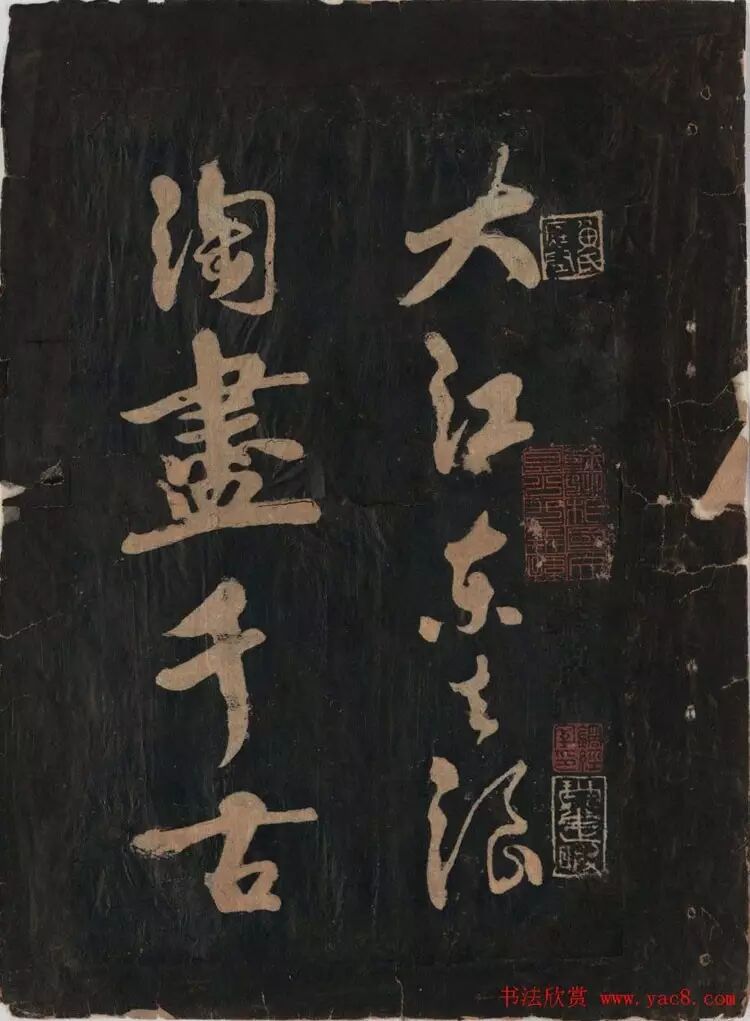 大江东去浪
淘盡千古
书法欣赏 www.yac8.com